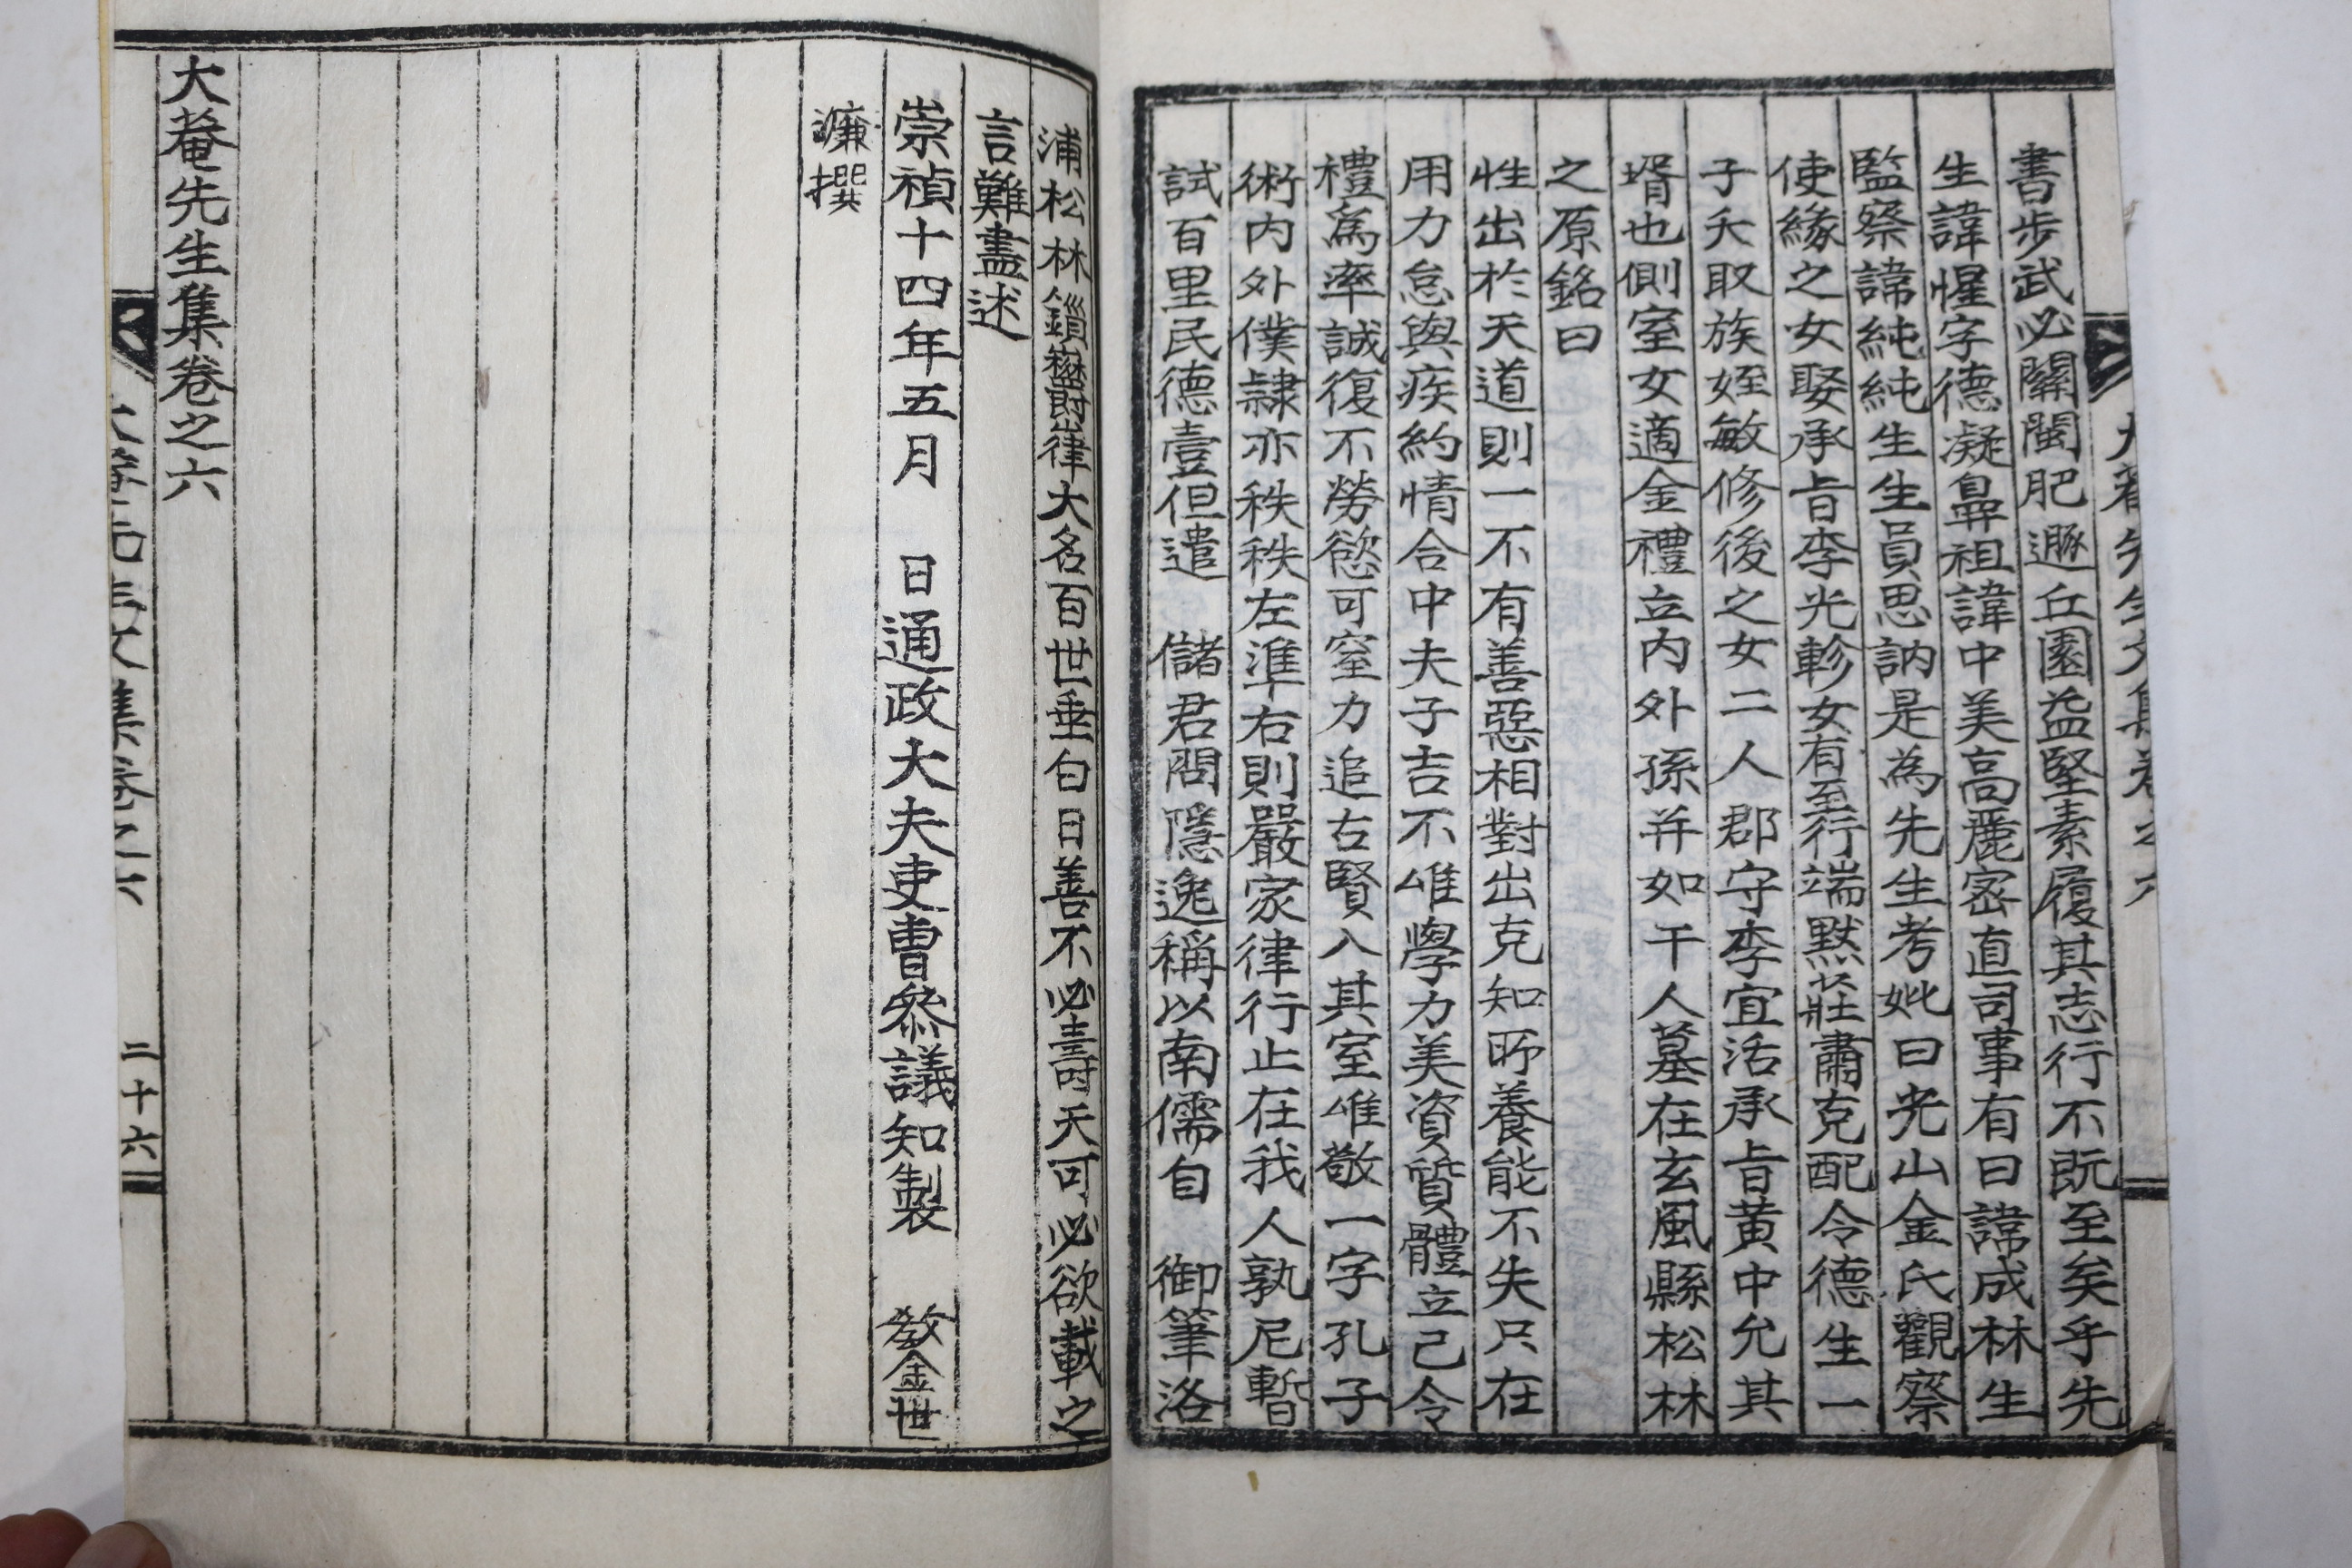 大菴先生文集卷之六
書步武必闢閫肥遯丘園益堅素履其志行不既至矣乎先
生諱惺字德凝鼻祖諱中美高麗密直司事有曰諱成林生
監察諱純純生生員思訥是為先生考妣曰光山金氏觀察
使緣之女娶承旨李光軫女有至行端默莊肅克配令德生一
子夭取族姪敏修後之女二人郡守李宜活承旨黃中允其
壻也側室女適金禮立內外孫并如干人墓在玄風縣松林
之原銘曰
性出於天道則一不有善惡相對出克知所養能不失只在
用力怠與疾約情合中夫子吉不唯學力美資質體立己令
禮爲率誠復不勞慾可窒力追古賢入其室唯敬一字孔子
術內外僕隷亦秩秩左準右則嚴家律行止在我人孰尼暫
試百里民德壹但遣 儲君問隱逸稱以南儒自 御筆洛
浦松林鎖律大名百世垂白日善不必壽天可必欲載之
言難盡述
崇禎十四年五月 日通政大夫吏曹參議知製 敎金世
濂撰
大菴先生集卷之六
集卷之六
二十六